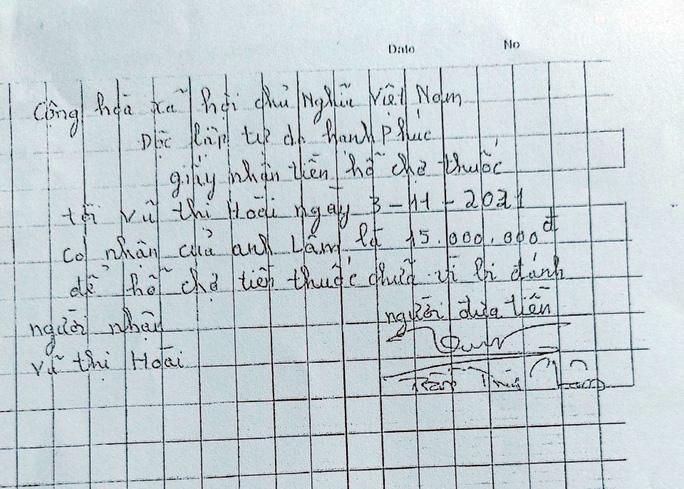 Date No
Cộng hòa xã hội chủ Nghĩa Việt Nam
Độc lập tự do hanh phúc
giấy nhận tiền hỗ chợ thuốc
tôi vũ thị Hoài ngày 3-11-2021
có nhân của anh Lâm là 15.000.000đ
để hỗ chợ tiền thuốc chữa vì bi đánh
người nhận người đưa tiền
vũ thị Hoài